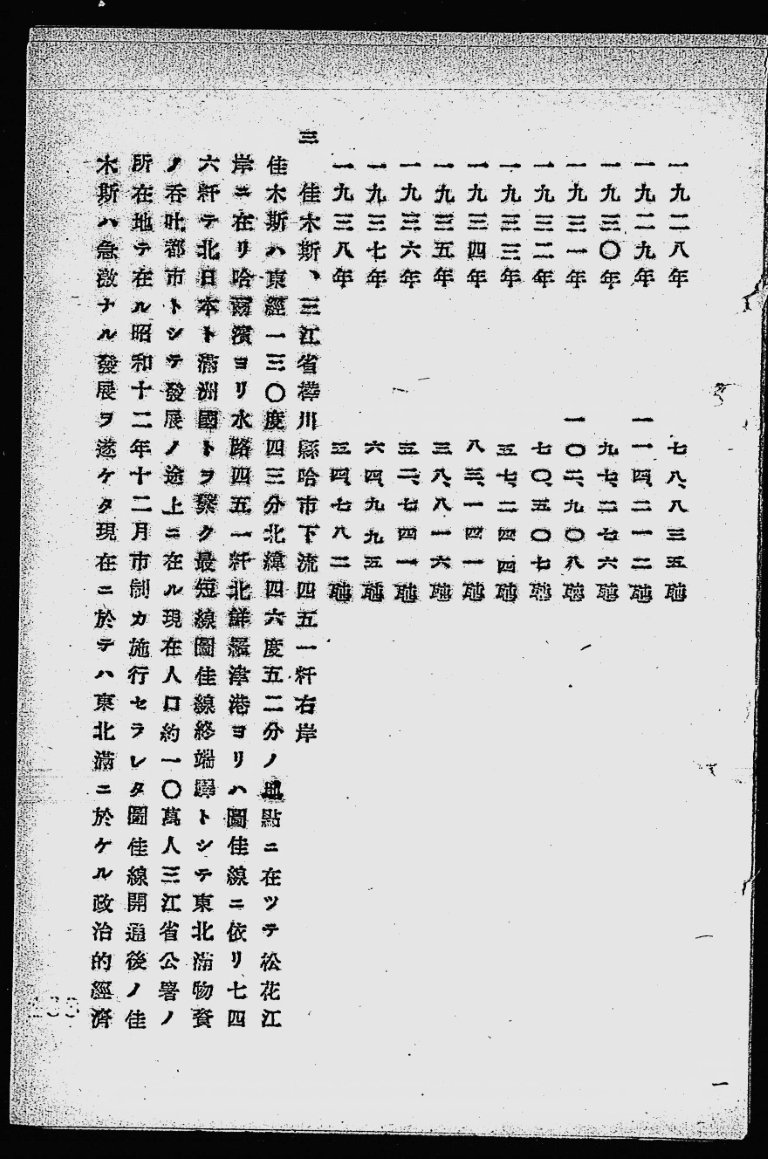 一九二八年　七八、八三五瓲
一九二九年　一一四、二一二瓲
一九三〇年　九七、二七六瓲
一九三一年　一〇二、九〇八瓲
一九三二年　七〇、五〇七瓲
一九三三年　五七、二四四瓲
一九三四年　八三、一四一瓲
一九三五年　三八、八一六瓲
一九三六年　五二、七四一瓲
一九三七年　六四、九九五瓲
一九三八年　三四、七八二瓲
三　佳木斯、三江省樺川縣哈市下流四五一粁右岸
佳木斯ハ東經一三〇度四三分北緯四六度五二分ノ地點ニ在ツテ松花江
岸ニ在リ哈爾濱ヨリ水路四五一粁北鮮羅津港ヨリハ圖佳線ニ依リ七四
六粁テ北日本ト滿洲國トヲ繋ク最短線圖佳線終端驛トシテ東北滿物資
ノ呑吐都市トシテ發展ノ途上ニ在ル現在人口約一〇萬人三江省公署ノ
所在地テ在ル昭和十二年十二月市制カ施行セラレタ圖佳線開通後ノ佳
木斯ハ急激ナル發展ヲ遂ケタ現在ニ於テハ東北滿ニ於ケル政治的經濟